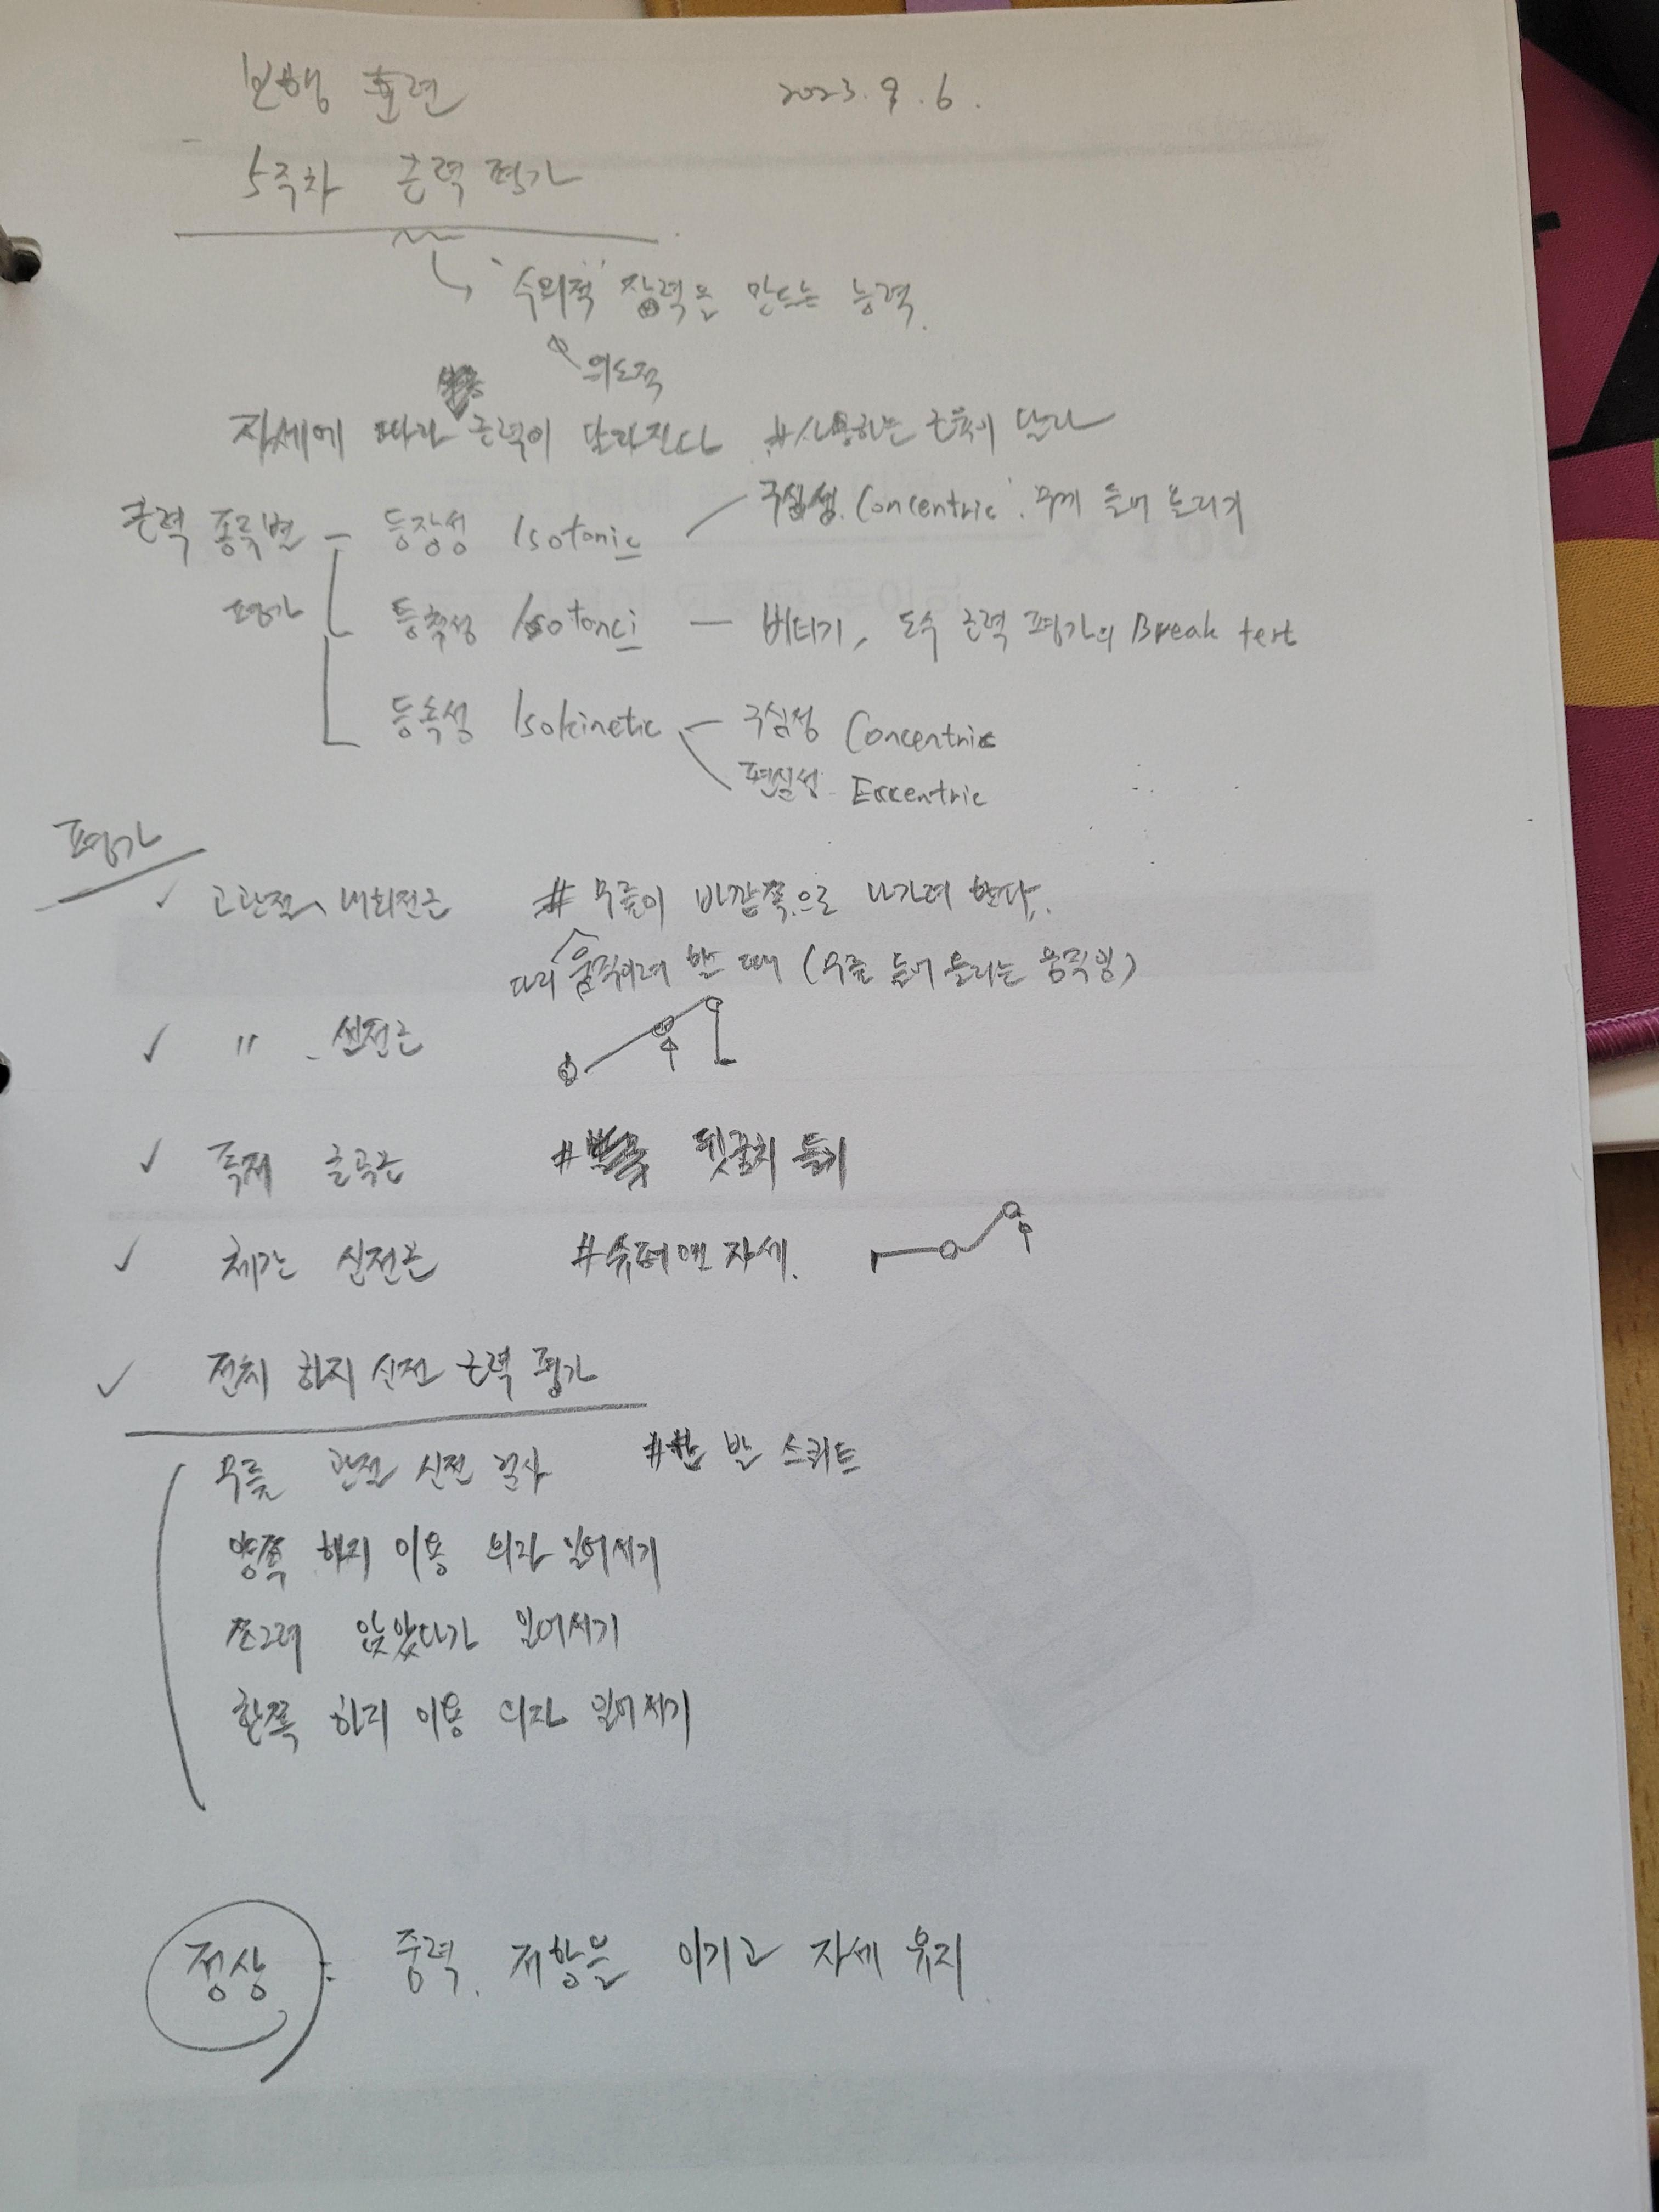 보행 훈련 2023. 9. 6.
5주차 근력 평가
'수의적' 장력을 만드는 능력.
의도적
자세에 따라 근력이 달라진다 #사용하는 근육이 달라
근력 종류별 - 등장성 Isotonic 구심성. Concentric. 무게 들어 올리기
평가 등척성 Isotonci - 버티기, 도수 근력 평가의 Break tert
등속성 Isokinetic - 구심성 Concentric
편심성 Eccentric
평가
✓ 고관절 내회전근 # 무릎이 바깥쪽으로 나가려 한다.
다리 움직이려 할 때 (무릎 들어 올리는 움직임)
✓ " 신전근
✓ 족저 굴곡근 # 뒷꿈치 들기
✓ 체간 신전근 #슈퍼맨 자세.
✓ 전체 하지 신전 근력 평가
무릎 관절 신전 검사 #한 발 스쿼트
양쪽 하지 이용 의자 일어서기
쪼그려 앉았다가 일어서기
한쪽 하지 이용 의자 일어서기
정상 : 중력. 저항을 이기고 자세 유지.